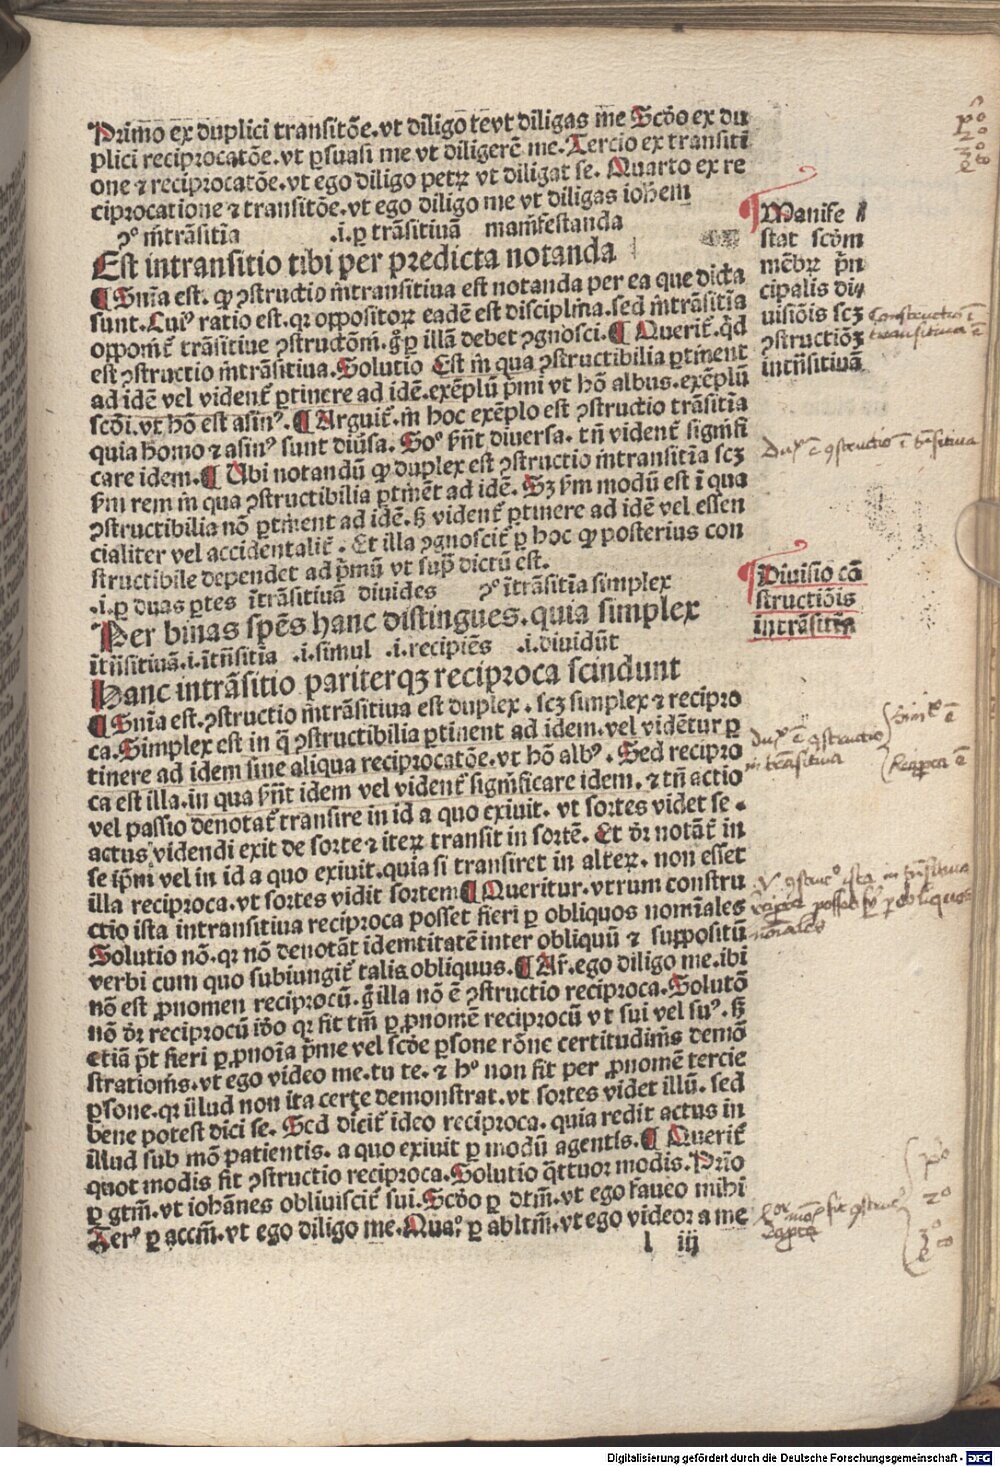 Primo ex duplici transitōe.vt diligo te vt diligas me Scďo ex du
plici reciprocatōe.vt ꝑsuasi me vt diligerē me.Tercio ex transiti
one ⁊ reciprocatōe.vt ego diligo petrꝝ vt diligat se. Quarto ex re
ciprocatione ⁊ transitōe.vt ego diligo me vt diligas iohēm
ꝯº intrāsitīa .i.ꝑ trāsitiuā manifestanda
Est intransitio tibi per predicta notanda
¶ Snīa est. ꝙ ꝯstructio intransitiua est notanda per ea que dicta
sunt.Cuiꝰ ratio est.qꝛ oppositoꝝ eadē est disciplina.sed intrāsitīa
opponit̄ trāsitiue ꝯstructōni.g̊ ꝑ illā debet ꝯgnosci.¶ Querit̄.qď
est ꝯstructio intrāsitiua.Solutio Est in qua ꝯstructibilia ꝑtinent
ad idē vel vident̄ ꝑtinere ad idē.exēplū pͥmi vt hō albus.exēplū
scďi.vt hō est asinꝰ.¶ Arguit̄.in hoc exēplo est ꝯstructio trāsitīa
quia homo ⁊ asinꝰ sunt diūsa. Soº sīnt diuersa. tn̄ vident̄ signifi
care idem.¶ Ubi notandū ꝙ duplex est ꝯstructio intransitīa scꝫ
ẜm rem in qua ꝯstructibilia ꝑtinēt ad idē. Sꝫ ẜm modū est ī qua
ꝯstructibilia nō ꝑtinent ad idē.ꝫ vident̄ ꝑtinere ad idē vel essen
cialiter vel accidentalit̄. Et illa ꝯgnoscit̄ ꝑ hoc ꝙ posterius con
structibile dependet ad pͥmū vt supͣ dictū est.
.i.ꝑ duas ꝑtes īträsitiuā diuides ꝯº ītrāsitīa simplex
Per binas spēs hanc distingues.quia simplex
ītn̄sitiuā.i.ītn̄sitīa .i.simul .i.recipiēs .i.diuidūt
Hanc intrāsitio pariterqꝫ reciproca scindunt
¶ Snīa est.ꝯstructio intrāsitiua est duplex. scꝫ simplex ⁊ recipro
ca.Simplex est in q̄ ꝯstructibilia ꝑtinent ad idem.vel vidētur ꝑ
tinere ad idem sine aliqua reciprocatōe.vt hō albꝰ. Sed recipro
ca est illa.in qua sīnt idem vel vident̄ significare idem.⁊ tn̄ actio
vel passio denotat̄ transire in id a quo exiuit. vt sortes videt se.
actus videndi exit de sorte ⁊ iteꝝ transit in sortē. Et dr̄ notāt̄ in
se ip̄m vel in id a quo exiuit.quia si transiret in alteꝝ. non esset
illa reciproca.vt sortes vidit sortem¶ Queritur.vtrum constru
ctio ista intransitiua reciproca posset fieri ꝑ obliquos nomīales
Solutio nō.qꝛ nō denotāt idemtitatē inter obliquū ⁊ suppositū
verbi cum quo subiungit̄ talis obliquus.¶ Ar̄.ego diligo me.ibi
nō est ꝓnomen reciprocū.g̊ illa nō ē ꝯstructio reciproca.Solutō
nō dr̄ reciprocū iďo qꝛ fit tm̄ ꝑ ꝓnomē reciprocū vt sui vel suꝰ.ꝫ
etiā pōt fieri ꝑ ꝓnoīa pͥme vel scďe ꝑsone rōne certitudinis demō
strationis.vt ego video me.tu te. ⁊ hº non fit per ꝓnomē tercie
ꝑsone.qꝛ illud non ita certe demonstrat.vt sortes videt illū. sed
bene potest dici se. Sed dicit̄ ideo reciproca. quia redit actus in
illud sub mō patientis. a quo exiuit ꝑ modū agentis.¶ Querit̄
quot modis fit ꝯstructio reciproca.Solutio q̄ttuor modis.Prīo
ꝑ gtm̄.vt iohānes obliuiscit̄ sui.Scďo ꝑ dtm̄.vt ego faueo mihi
Terº ꝑ accm̄.vt ego diligo me.Quaº.ꝑ abltm̄.vt ego videoꝛ a me
l iij
Manife
stat scďm
mēbꝝ pͥn
cipalis di
uisiōis scꝫ
ꝯstructiōꝫ
intn̄sitiuā
Constructio ī
transitiua ē
Duplͣ ē ꝯstructio ī trāsitiua
Diuisio cō
structiōis
intrāsitīe
dupͣ ē ꝯstructio
in trāsitiua
simplͣ ē
Reciproca ē